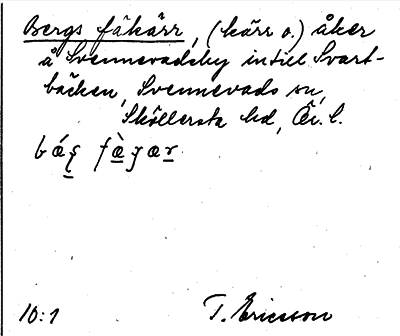 Bergs fäkärr, (kärr o.) åker
å Svennevadsby intill Svart-
bäcken, Svennevads sn,
Sköllersta hd, Ör. l.
10:1 T. Ericsson